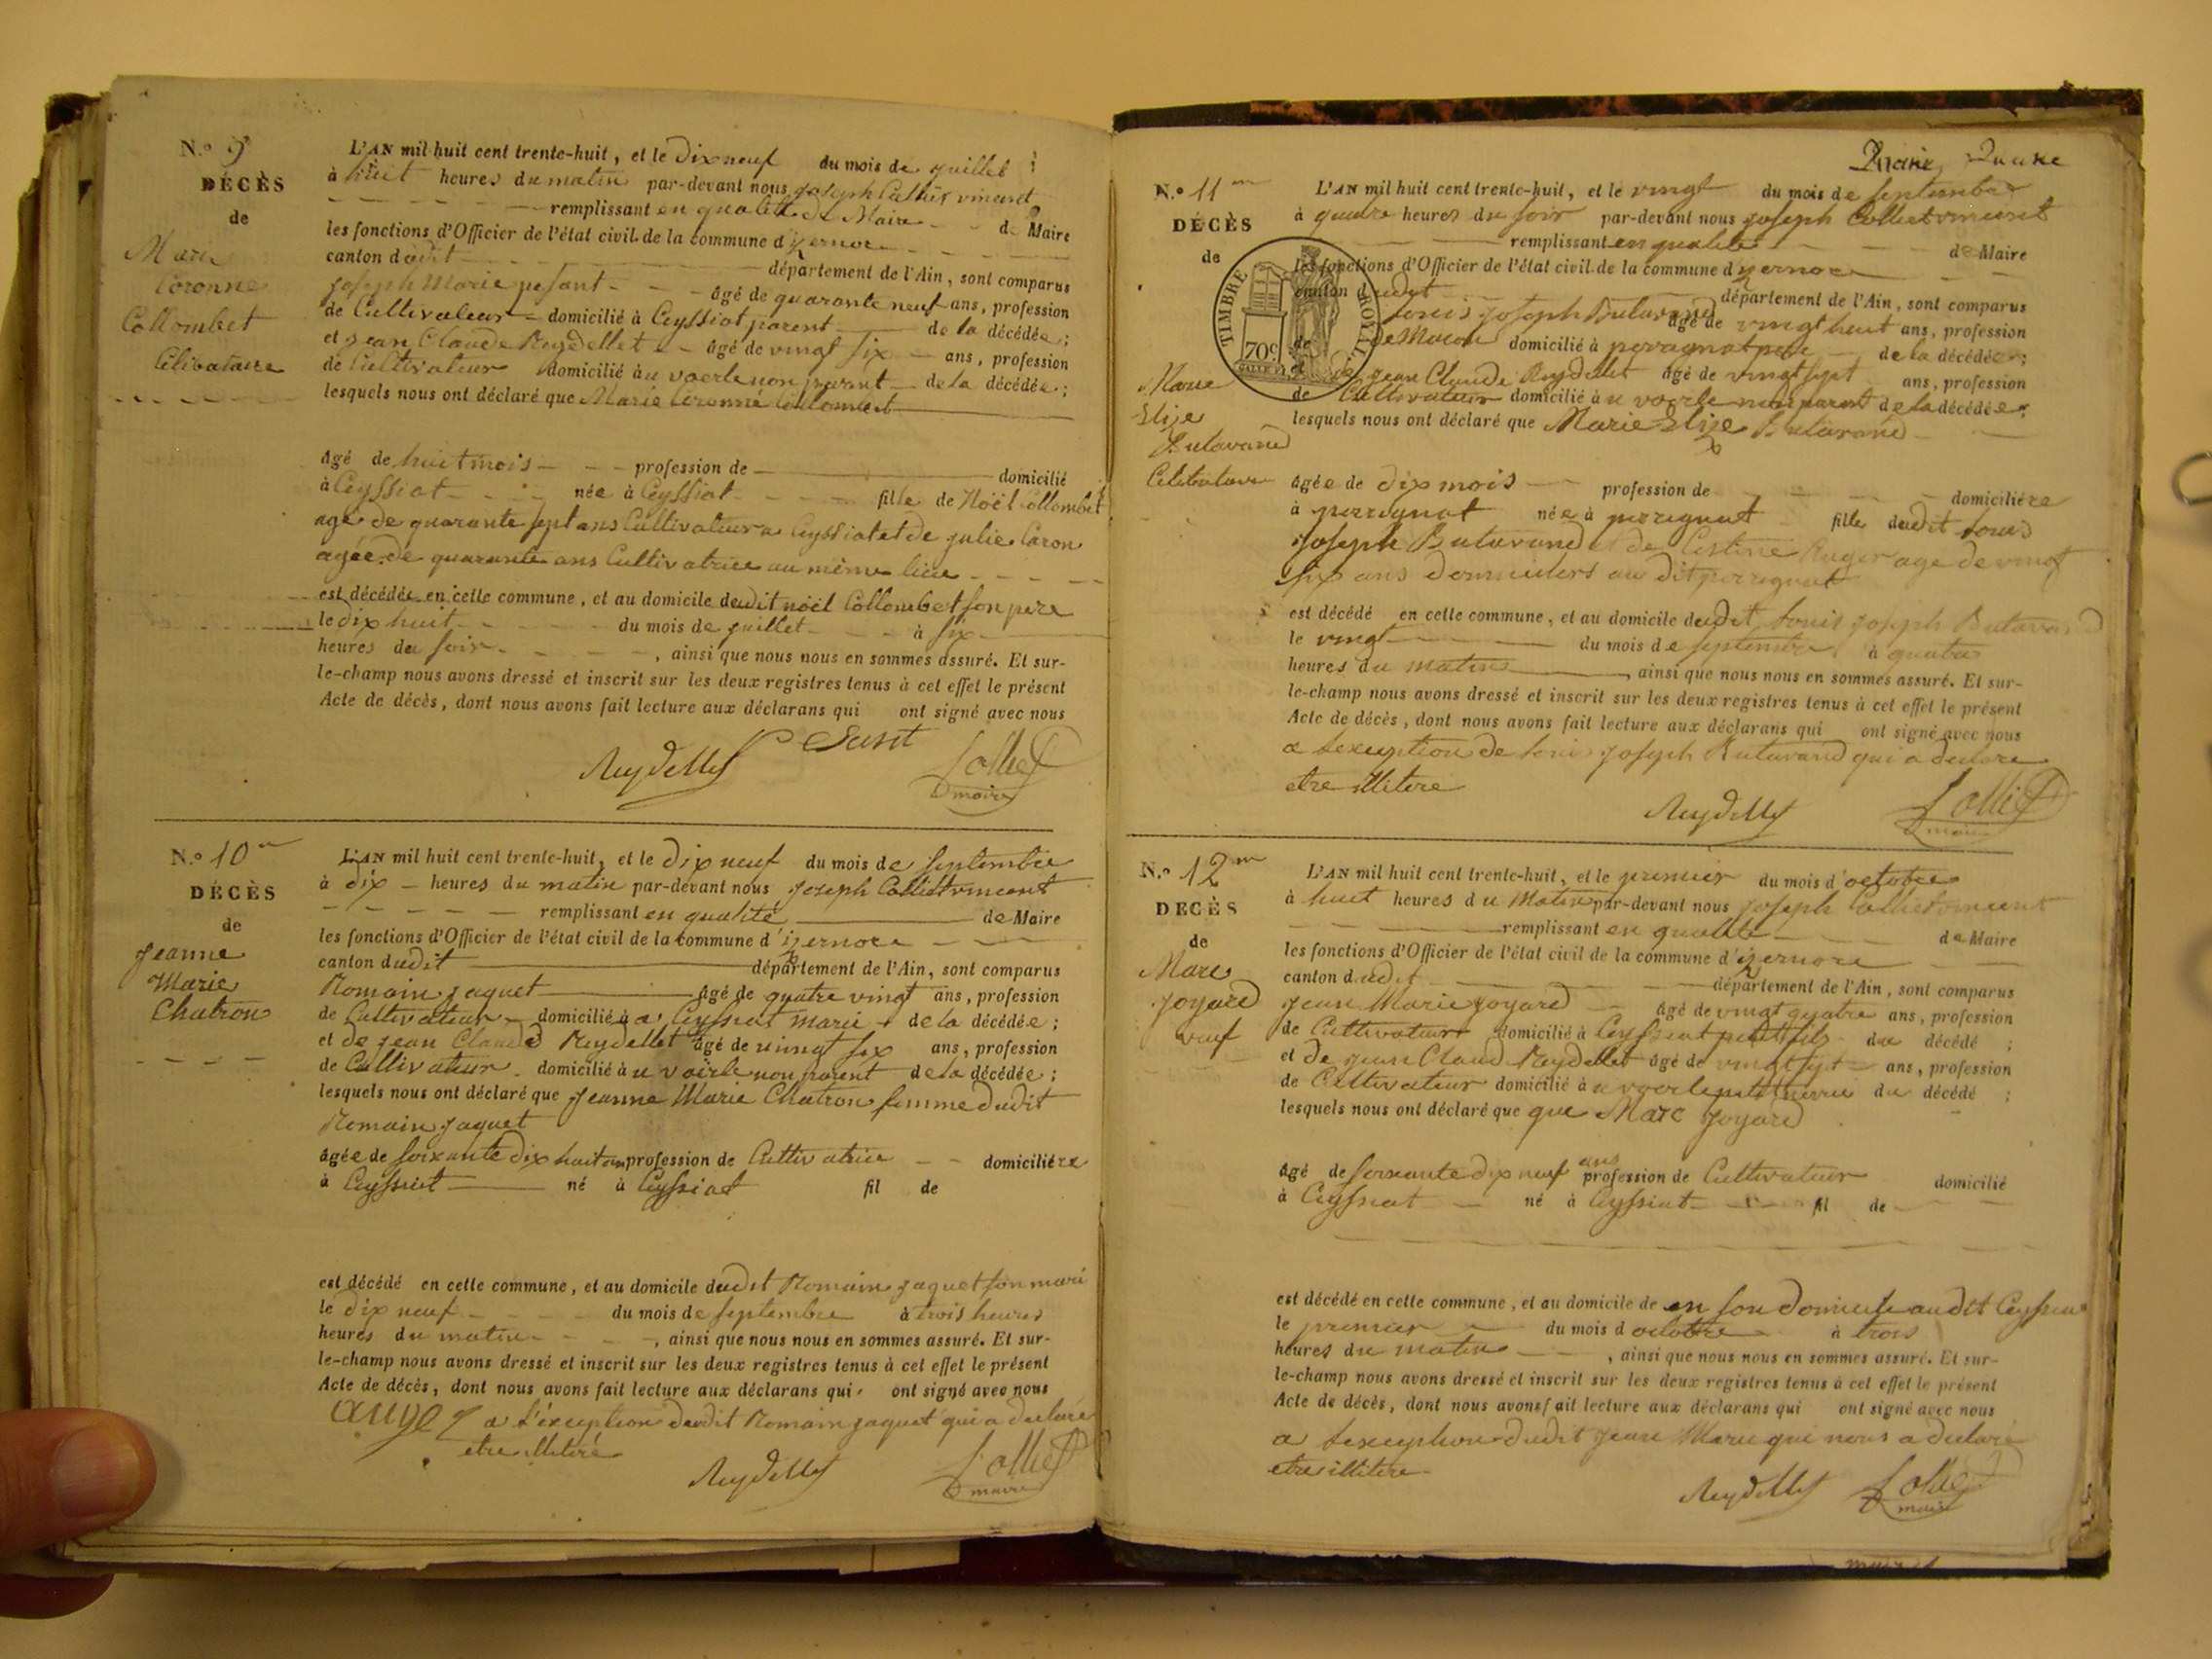 N.º 9
DÉCÈS
de
Marie
Coronne
Collombet
Célibataire
L'AN mil huit cent trente-huit, et le dix neuf du mois de juillet
à huit heures du matin par-devant nous joseph Colliet vincent
remplissant en qualité de Maire de Maire
les fonctions d'Officier de l'état civil de la commune d'izernore
canton dudit département de l'Ain, sont comparus
joseph Marie pesant âgé de quarante neuf ans, profession
de Cultivateur domicilié à Ceyssiat parent de la décédée;
et jean Claude Reydellet âgé de vingt six ans, profession
de Cultivateur domicilié à u voerle non parent de la décédée;
lesquels nous ont déclaré que Marie Coronne Collombet
âgé de huit mois profession de domicilié
à Ceyssiat née à Ceyssiat fille de Noël Collombet
agé de quarante sept ans Cultivateur a Ceyssiat et de julie Caron
agée de quarante ans Cultivatrice au même lieu
est décédée en cette commune, et au domicile dudit noël Collombet son père
le dix huit du mois de juillet à six
heures du soir, ainsi que nous nous en sommes assuré. Et sur-
le-champ nous avons dressé et inscrit sur les deux registres tenus à cet effet le présent
Acte de décès, dont nous avons fait lecture aux déclarans qui ont signé avec nous
Reydellet Pesant Colliet
maire
N.º 10
DÉCÈS
de
jeanne
Marie
Chatron
L'AN mil huit cent trente-huit, et le dix neuf du mois de septembre
à dix heures du matin par-devant nous joseph Colliet vincent
remplissant en qualité de Maire
les fonctions d'Officier de l'état civil de la commune d'izernore
canton dudit département de l'Ain, sont comparus
Romain jaquet âgé de quatre vingt ans, profession
de Cultivateur domicilié à a Ceyssiat marie de la décédée;
et de jean Claude Reydellet âgé de vingt six ans, profession
de Cultivateur domicilié à u voirle non parent de la décédée;
lesquels nous ont déclaré que jeanne Marie Chatron femme dudit
Romain jaquet
âgée de soixante dix huit ans profession de Cultivatrice domiciliére
à Ceyssiat né à Ceyssiat fil de
est décédé en cette commune, et au domicile dudit Romain jaquet son mari
le dix neuf du mois de septembre à trois heures
heures du matin, ainsi que nous nous en sommes assuré. Et sur-
le-champ nous avons dressé et inscrit sur les deux registres tenus à cet effet le présent
Acte de décès, dont nous avons fait lecture aux déclarans qui ont signé avec nous
a l'exception dudit Romain jaquet qui a declaré
etre illitéré
Reydellet Colliet
maire
N.º 11
DÉCÈS
de
Marie
Elize
Butavand
Celibataire
TIMBRE ROYAL
70c
L'AN mil huit cent trente-huit, et le vingt du mois de septembre
à quatre heures du soir par-devant nous joseph Colliet vincent
remplissant en qualité de Maire
les fonctions d'Officier de l'état civil de la commune d'izernore
canton dudit département de l'Ain, sont comparus
Louis joseph Butavand âgé de vingt huit ans, profession
de Macon domicilié à perrignat pere de la décédée;
et de jean Claude Reydellet âgé de vingt sept ans, profession
de Cultivateur domicilié à u voerle non parent de la décédée;
lesquels nous ont déclaré que Marie Elize Butavand
âgée de dix mois profession de domiciliére
à perrignat née à perrignat fille dudit Louis
joseph Butavand et de Celstine Auger age de vingt
six ans domiciliers au dit perrignat
est décédé en cette commune, et au domicile dudit Louis joseph Butavand
le vingt du mois de septembre à quatre
heures du matin, ainsi que nous nous en sommes assuré. Et sur-
le-champ nous avons dressé et inscrit sur les deux registres tenus à cet effet le présent
Acte de décès, dont nous avons fait lecture aux déclarans qui ont signé avec nous
a lexception de Louis joseph Butavand qui a declare
etre illitere
Reydellet Colliet
maire
N.º 12
DÉCÈS
de
Marc
joyard
veuf
L'AN mil huit cent trente-huit, et le premier du mois d'octobre
à huit heures du Matin par-devant nous joseph Colliet vincent
remplissant en qualité de Maire
les fonctions d'Officier de l'état civil de la commune d'izernore
canton dudit département de l'Ain, sont comparus
jean Marie joyard âgé de vingt quatre ans, profession
de Cultivateur domicilié à Ceyssiat petit fils du décédé;
et de jean Claud Reydellet âgé de vingt sept ans, profession
de Cultivateur domicilié à u voerle petit neveu du décédé;
lesquels nous ont déclaré que que Marc joyard
âgé de soixante dix neuf ans profession de Cultivateur domicilié
à Ceyssiat né à Ceyssiat fil de
est décédé en cette commune, et au domicile de en son domicile audit Ceyssiat
le premier du mois d octobre à trois
heures du matin, ainsi que nous nous en sommes assuré. Et sur-
le-champ nous avons dressé et inscrit sur les deux registres tenus à cet effet le présent
Acte de décès, dont nous avons fait lecture aux déclarans qui ont signé avec nous
a lexception dudit jean Marie qui nous a declaré
etre illitere
Reydellet Colliet
maire